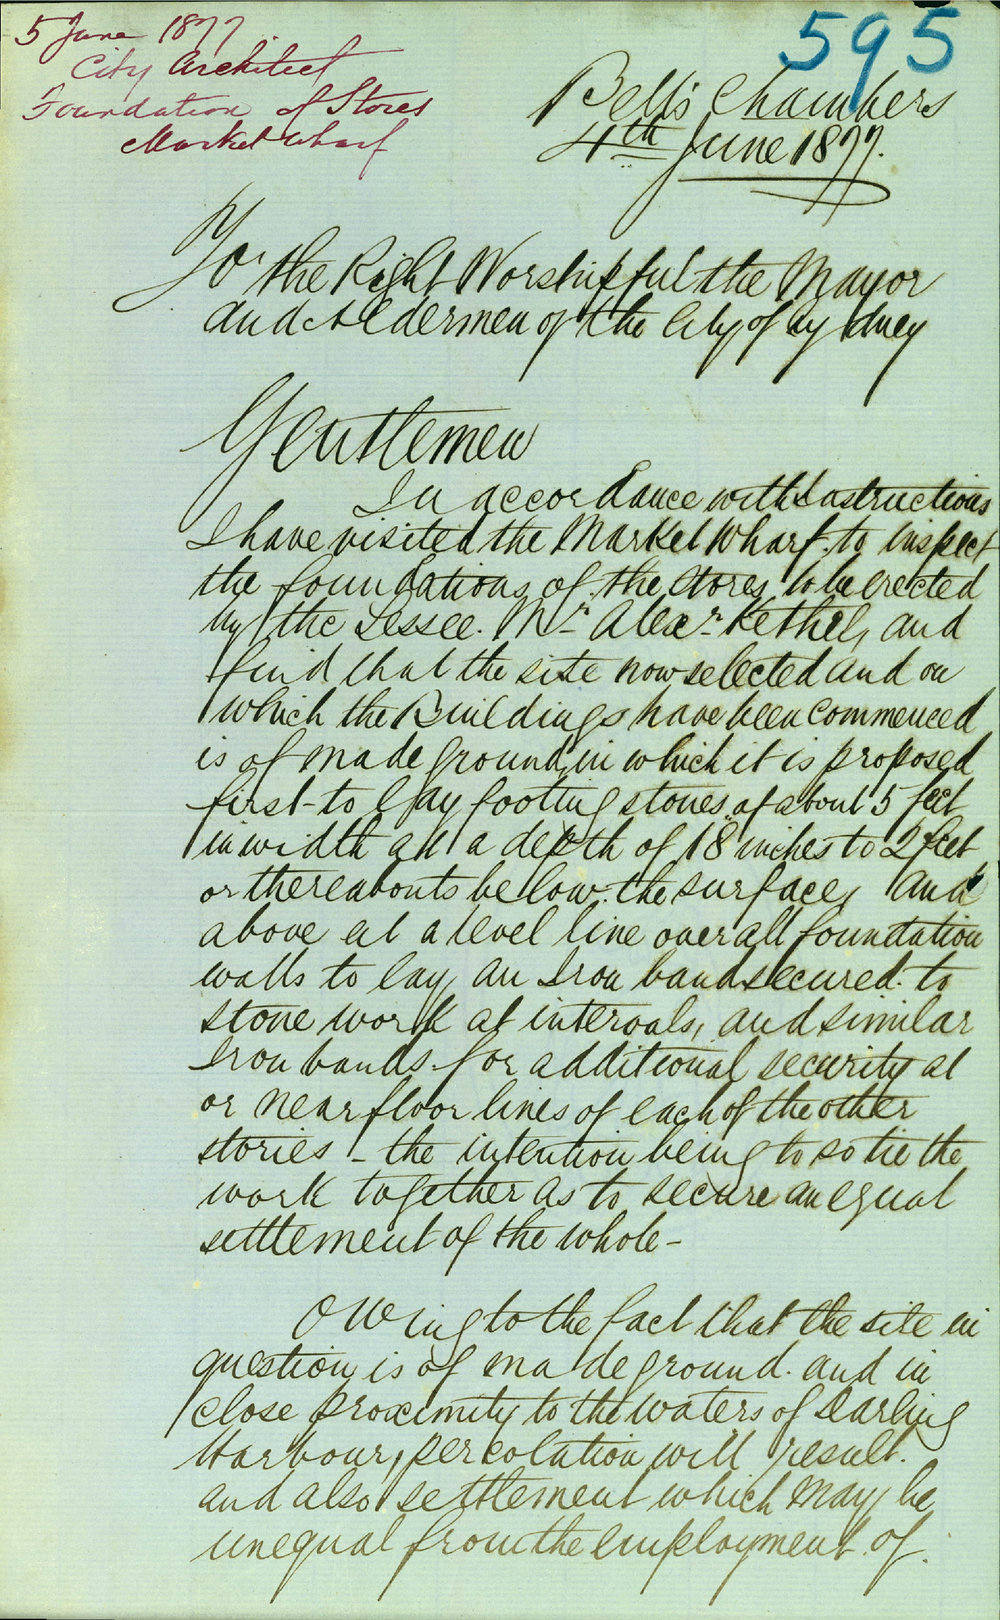 5 June 1877.
City Architect
Foundation of Stores
Market Wharf
595
Bell's Chambers
4th June 1877.
To the Right Worshipful the Mayor
and Aldermen of the City of Sydney
Gentlemen
In accordance with Instructions
I have visited the Market Wharf to inspect
the foundations of the Stores to be erected
by the Lessee. Mr Alexr Kethel, and
find that the site now selected and on
which the Buildings have been commenced
is of made ground, in which it is proposed
first to lay footing stones of about 5 feet
in width at a depth of 18 inches to 2 feet
or thereabouts below the surface, and
above at a level line over all foundation
walls to lay an Iron band secured to
stone work at intervals, and similar
Iron bands for additional security at
or near floor lines of each of the other
stories - the intention being to so tie the
work together as to secure an equal
settlement of the whole -
Owing to the fact that the site in
question is of made ground. and in
close proximity to the waters of Darling
Harbour, percolation will result.
and also settlement which may be
unequal from the employment of.